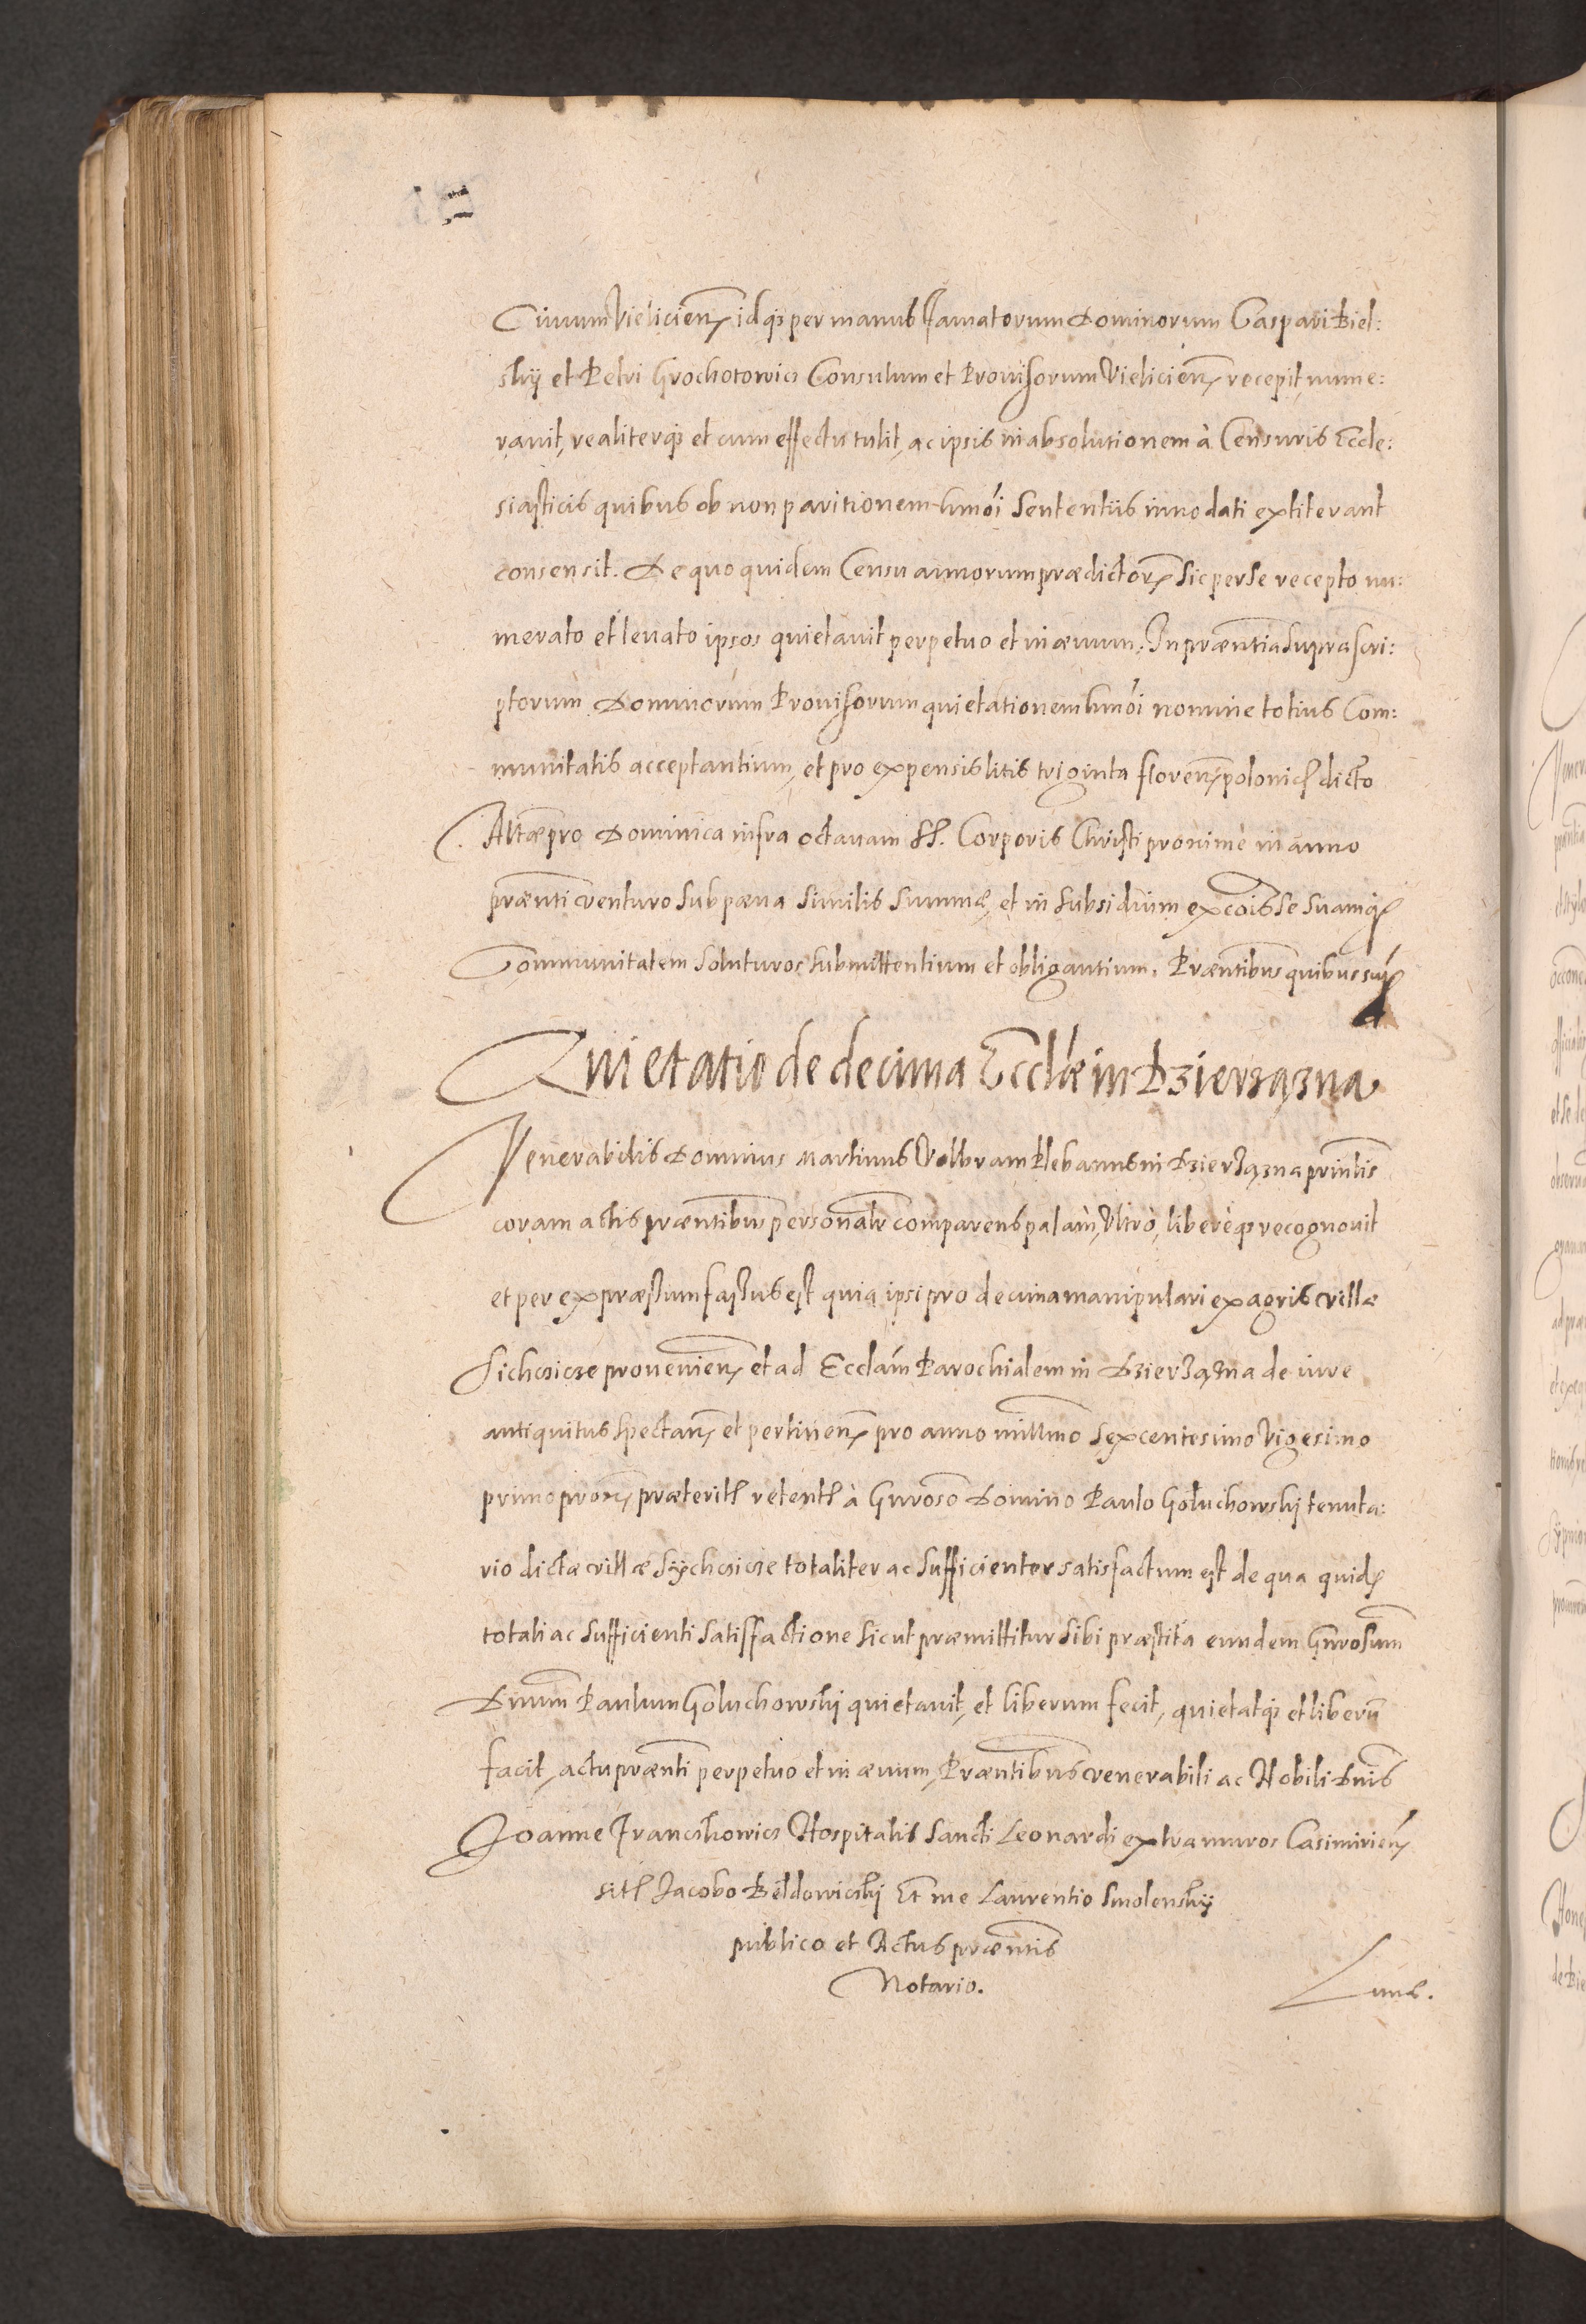 Ciuium Vieliciens idq3 per manus famatorum Dominorum Caspari Biel:
skij et Petri Grochotowicz Consulum et Prouisorum Vieliciens recepit, nume:
rauit, realiterq3 et cum effectu tulit, ac ipsis in absolutionem à Censuris Eccle:
siasticis quibus ob non paritionem hmoi Sententiis innodati extiterant
consensit. De quo quidem Censu annorum prædictor Sic per Se recepto nu:
merato et leuato ipsos quietauit perpetuo et in æuum. In præntia Suprascri:
ptorum Dominorum Prouisorum quietationem hmoi nomine totius Com:
munitatis acceptantium, et pro expensis litis triginta floren polonical dicto
pro Dominica infra octauam Sl. Corporis Christi proxime in anno
prænti venturo Sub pæna Similis Summæ, et in Subsidium excois Se Suamq3
Communitatem Soluturos Submittentium et obligantium. Præntibus quibus sup
Quietatio de decima Eccliæ in Dzierzązna
Venerabilis Dominus Martinus Wolbram Plebanus in Dzierzązna princlis
coram actis præntibus personalr comparens palam, Vltrò, libereq3 recognouit
et per expræssum fassus est quia ipsi pro decima manipulari ex agris villæ
Sichcicze prouenien et ad Eccliam Parochialem in Dzierzązna de iure
antiquitus Spectan et pertinen pro anno millmo Sexcentesimo Vigesimo
primo prox præterit retent à Gnroso Domino Paulo Goluchowskj tenuta:
rio dictæ villæ Sijchcicze totaliter ac Sufficienter satisfactum est de qua quid
totali ac Sufficienti Satisfactione Sicut præmittitur Sibi præstita eundem Gnrosum
Dnum Paulum Goluchowskj quietauit, et liberum fecit, quietatq3 et liberū
facit, actu prænti perpetuo et in æuum, Præntibus venerabili ac Nobili Dnis
Joanne Franczkowicz Hospitalis Sancti Leonardi extra muros Casimirien
sit Jacobo Beldowickj Et me Laurentio Smolenskij
publico et Actus præntis
Notario.
Lunæ.